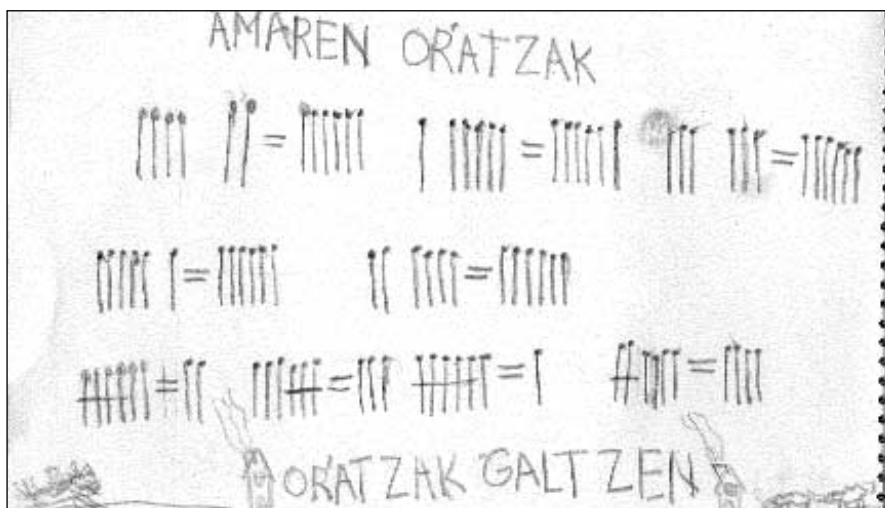 AMAREN OŔATZAK
OŔATZAK GALTZEN